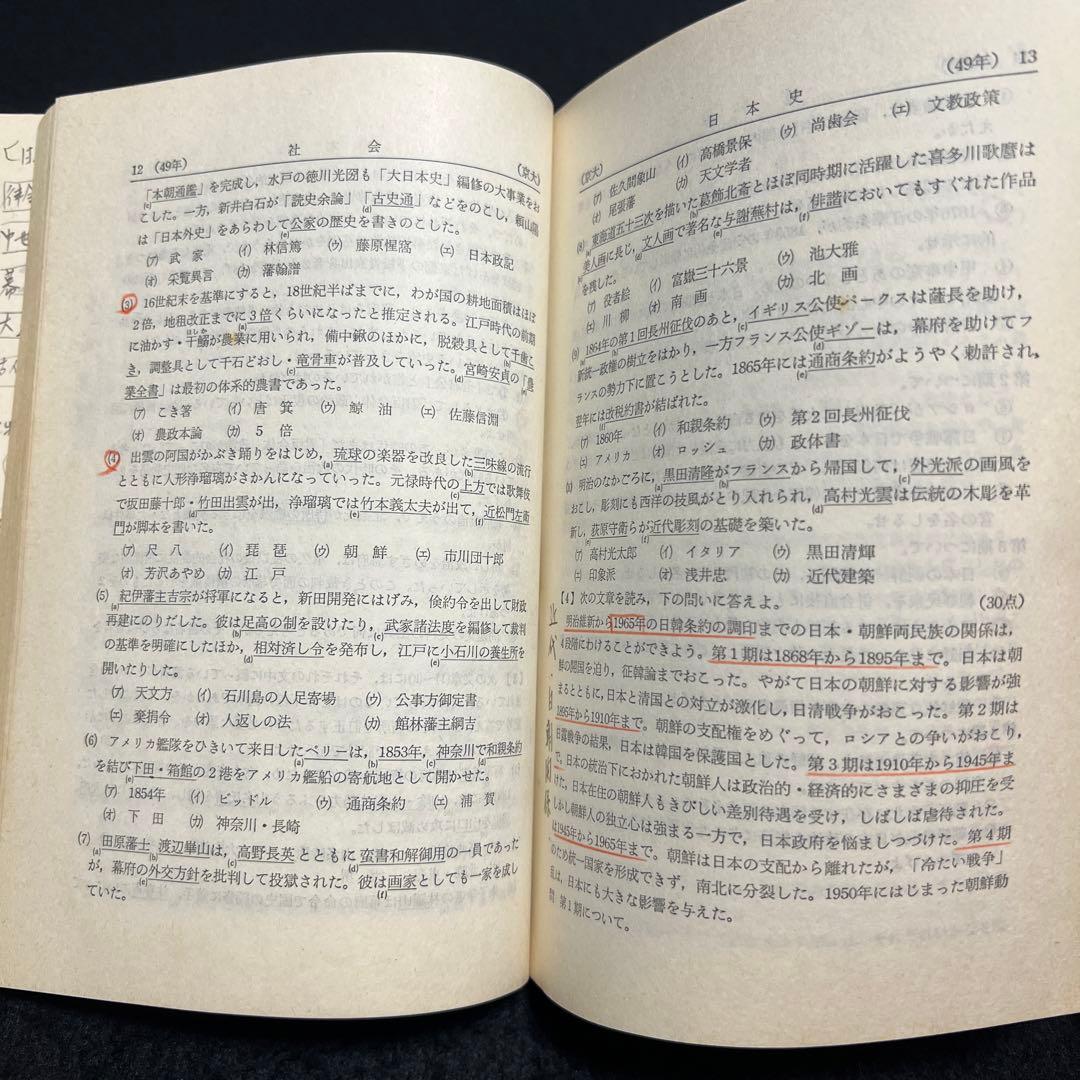 12 (49年) 社会 (京大)
「本朝通鑑」を完成し，水戸の徳川光圀も「大日本史」編修の大事業をお
こした。一方，新井白石が「読史余論」「古史通」などをのこし，頼山陽
は「日本外史」をあらわして公家の歴史を書きのこした。
(ア) 武家 (イ) 林信篤 (ウ) 藤原惺窩 (エ) 日本政記
(オ) 采覧異言 (カ) 藩翰譜
(3) 16世紀末を基準にすると，18世紀半ばまでに，わが国の耕地面積はほぼ
2倍，地租改正までに3倍くらいになったと推定される。江戸時代の前期
に油かす・干鰯が農業に用いられ，備中鍬のほかに，脱穀具として千歯こ
き，調整具として千石どおし・竜骨車が普及していった。宮崎安貞の「農
業全書」は最初の体系的農書であった。
(ア) こき箸 (イ) 唐箕 (ウ) 鯨油 (エ) 佐藤信淵
(オ) 農政本論 (カ) 5倍
(4) 出雲の阿国がかぶき踊りをはじめ，琉球の楽器を改良した三味線の流行
とともに人形浄瑠璃がさかんになっていった。元禄時代の上方では歌舞伎
で坂田藤十郎・竹田出雲が出，浄瑠璃では竹本義太夫が出て，近松門左衛
門が脚本を書いた。
(ア) 尺八 (イ) 琵琶 (ウ) 朝鮮 (エ) 市川団十郎
(オ) 芳沢あやめ (カ) 江戸
(5) 紀伊藩主吉宗が将軍になると，新田開発にはげみ，倹約令を出して財政
再建にのりだした。彼は足高の制を設けたり，武家諸法度を編修して裁判
の基準を明確にしたほか，相対済し令を発布し，江戸に小石川の養生所を
開いたりした。
(ア) 天文方 (イ) 石川島の人足寄場 (ウ) 公事方御定書
(エ) 棄捐令 (オ) 人返しの法 (カ) 館林藩主綱吉
(6) アメリカ艦隊をひきいて来日したペリーは，1853年，神奈川で和親条約
を結び下田・箱館の2港をアメリカ艦船の寄航地として開かせた。
(ア) 1854年 (イ) ビッドル (ウ) 通商条約 (エ) 浦賀
(オ) 下田 (カ) 神奈川・長崎
(7) 田原藩士渡辺崋山は，高野長英とともに蛮書和解御用の一員であった
が，幕府の外交方針を批判して投獄された。彼は画家としても一家を成し
ていた。
(京大) 日本史 (49年) 13
(ア) 佐久間象山 (イ) 高橋景保 (ウ) 尚歯会 (エ) 文教政策
(オ) 尾張藩 (カ) 天文学者
(8) 東海道五十三次を描いた葛飾北斎とほぼ同時期に活躍した喜多川歌麿は
美人画に長じ，文人画で著名な与謝蕪村は，俳諧においてもすぐれた作品
を残した。
(ア) 役者絵 (イ) 富嶽三十六景 (ウ) 池大雅
(エ) 川柳 (オ) 南画 (カ) 北画
1864年の第1回長州征伐のあと，イギリス公使パークスは薩長を助け，
新統一政権の樹立をはかり，一方フランス公使ギゾーは，幕府を助けてフ
ランスの勢力下に置こうとした。1865年には通商条約がようやく勅許され，
翌年には改税約書が結ばれた。
(ア) 1860年 (イ) 和親条約 (ウ) 第2回長州征伐
(エ) アメリカ (オ) ロッシュ (カ) 政体書
明治のなかごろに，黒田清隆がフランスから帰国して，外光派の画風を
おこし，彫刻にも西洋の技風がとり入れられ，高村光雲は伝統の木彫を革
新し，荻原守衛らが近代彫刻の基礎を築いた。
(ア) 高村光太郎 (イ) イタリア (ウ) 黒田清輝
(エ) 印象派 (オ) 浅井忠 (カ) 近代建築
【4】次の文章を読み，下の問いに答えよ。 (30点)
明治維新から1965年の日韓条約の調印までの日本・朝鮮両民族の関係は，
4段階にわけることができよう。第1期は1868年から1895年まで。日本は朝
鮮の開国を迫り，征韓論までおこった。やがて日本の朝鮮に対する影響が強
まるとともに，日本と清国との対立が激化し，日清戦争がおこった。第2期は
1895年から1910年まで。朝鮮の支配権をめぐって，ロシアとの争いがおこり，
日露戦争の結果，日本は韓国を保護国とした。第3期は1910年から1945年ま
で。日本の統治下におかれた朝鮮人は政治的・経済的にさまざまの抑圧を受
けた。日本在住の朝鮮人もきびしい差別待遇を受け，しばしば虐待された。
しかし朝鮮人の独立心は強まる一方で，日本政府を悩ましつづけた。第4期
は1945年から1965年まで。朝鮮は日本の支配から離れたが，「冷たい戦争」
のため統一国家を形成できず，南北に分裂した。1950年にはじまった朝鮮動
乱は，日本にも大きな影響を与えた。
問 第1期について。